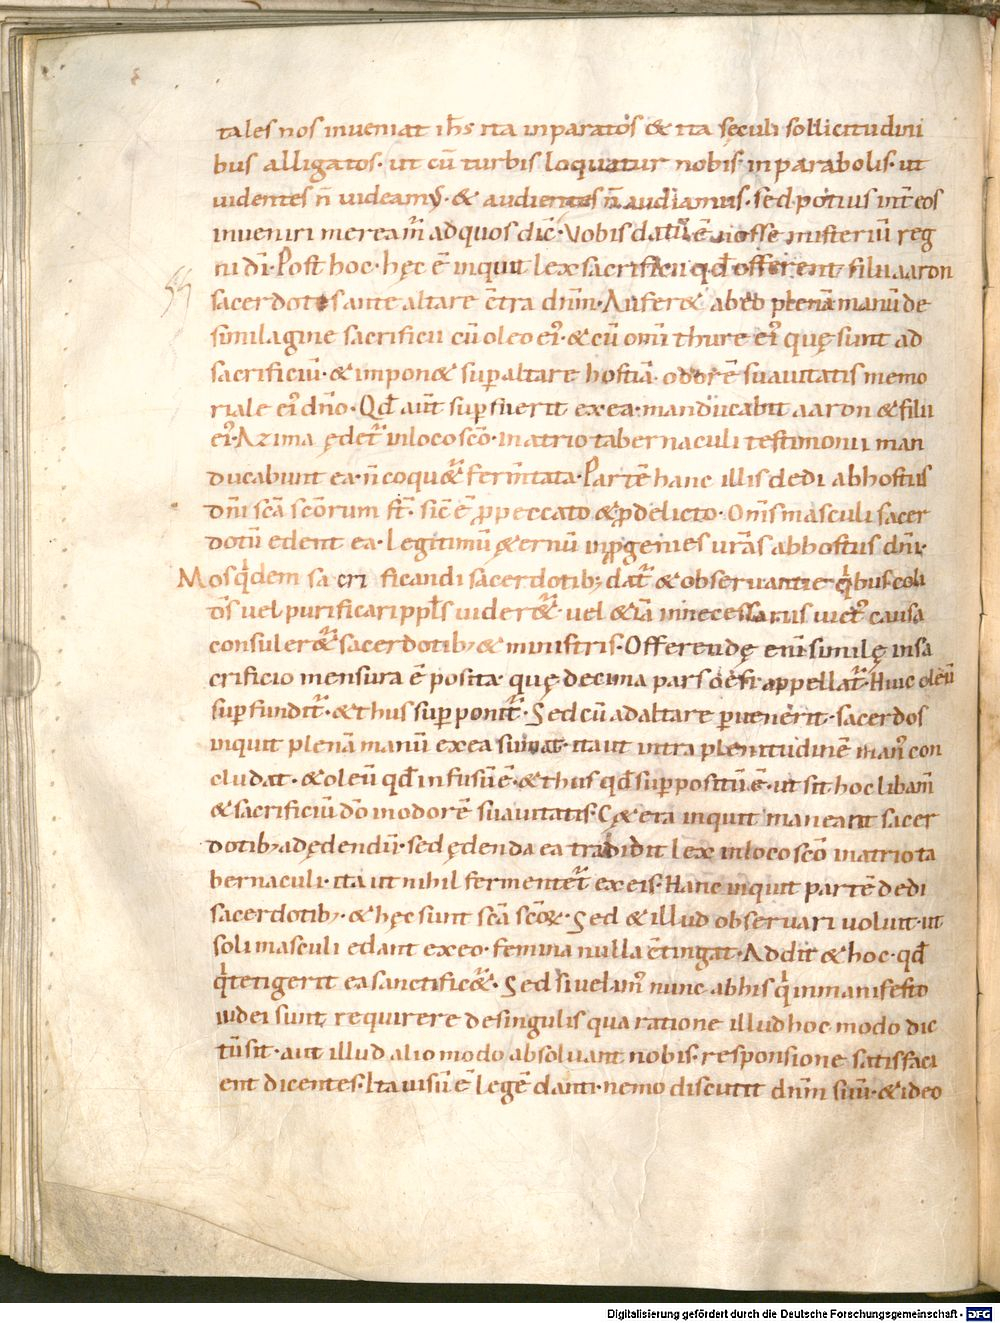 tales nos inveniat ih̅s ita inparatos & ita sęculi sollicitudini
bus alligatos· ut cū turbis loquatur nobis inparabolis· ut
videntes n̄ videamꝰ· & audientes n̄ audiamus· sed potius int̄ eos
inveniri meream̄ ad quos dic̄· Vobis datū ē nosse misteriū reg
ni dī· Post hoc· hęc ē inquit lex sacrificii qd̄ offerent filii aaron
sacerdotes ante altare c̄tra dn̄m· Auferet ab eo plenā manū de
similagine sacrificii cū oleo eiꝰ· & cū omī thure eiꝰ quę sunt ad
sacrificiū· & imponet sup altare hostiā· odorē suavitatis memo
riale eiꝰ dn̄o· Qd̄ aut̄ supfuerit ex ea· manducabit aaron & filii
eiꝰ· Azima ędet̄ inloco sc̄o· in atrio tabernaculi testimonii man
ducabunt ea· n̄ coquet̄ ferm̄tata· Partē hanc illis dedi ab hostiis
dn̄i sc̄a sc̄orum st̄· sic̄ ē ꝓ peccato & ꝓ delicto· Om̄s masculi sacer
dotū edent ea· Legitimū ęternū inꝓgenies vr̄as ab hostiis dn̄i·
Mos qͥdem sacrificandi sacerdotibꝫ dat̄ & observantie qͥbus coli
d̄s vel purificari ppl̄s videret̄· vel etiā innecessariis vict᷒ causa
consuleret̄ sacerdotibꝫ & ministris· Offerendę enī similę insa
crificio mensura ē posita quę decima pars oefi appellat̄· Huic oleū
supfundit̄· & thus supponit̄· Sed cū ad altare pvenerit· sacerdos
inquit plenā manū ex ea sumat· ita ut intra plenitudinē manꝰ con
cludat· & oleū qd̄ infusū ē· & thus qd̄ suppositū ē· ut sit hoc libam̄
& sacrificiū dō inodorē suavitatis· Cętera inquit maneant sacer
dotibꝫ ad ędendū· sed ędenda ea tradidit lex inloco sc̄o inatrio ta
bernaculi· ita ut nihil fermentet̄ ex eis· Hanc inquit partē dedi
sacerdotibꝫ· & hęc sunt sc̄a sc̄oꝝ· Sed & illud observari voluit· ut
soli masculi edant ex eo· femina nulla c̄tingat· Addit & hoc· qd̄
qͥ tetigerit ea sanctificet̄· Sed si velimꝰ nunc ab his qͥ inmanifesto
iudei sunt requirere desingulis qua ratione illud hoc modo dic
tū sit· aut illud alio modo absolvant nobis· responsione satisfaci
ent dicentes· Ita visū ē legē danti· nemo discutit dn̄m suū· & ideo
Digitalisierung gefördert durch die Deutsche Forschungsgemeinschaft - DFG